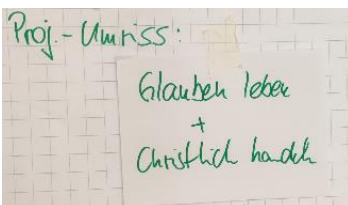 Proj.-Umriss:
Glauben leben
+
Christlich handeln